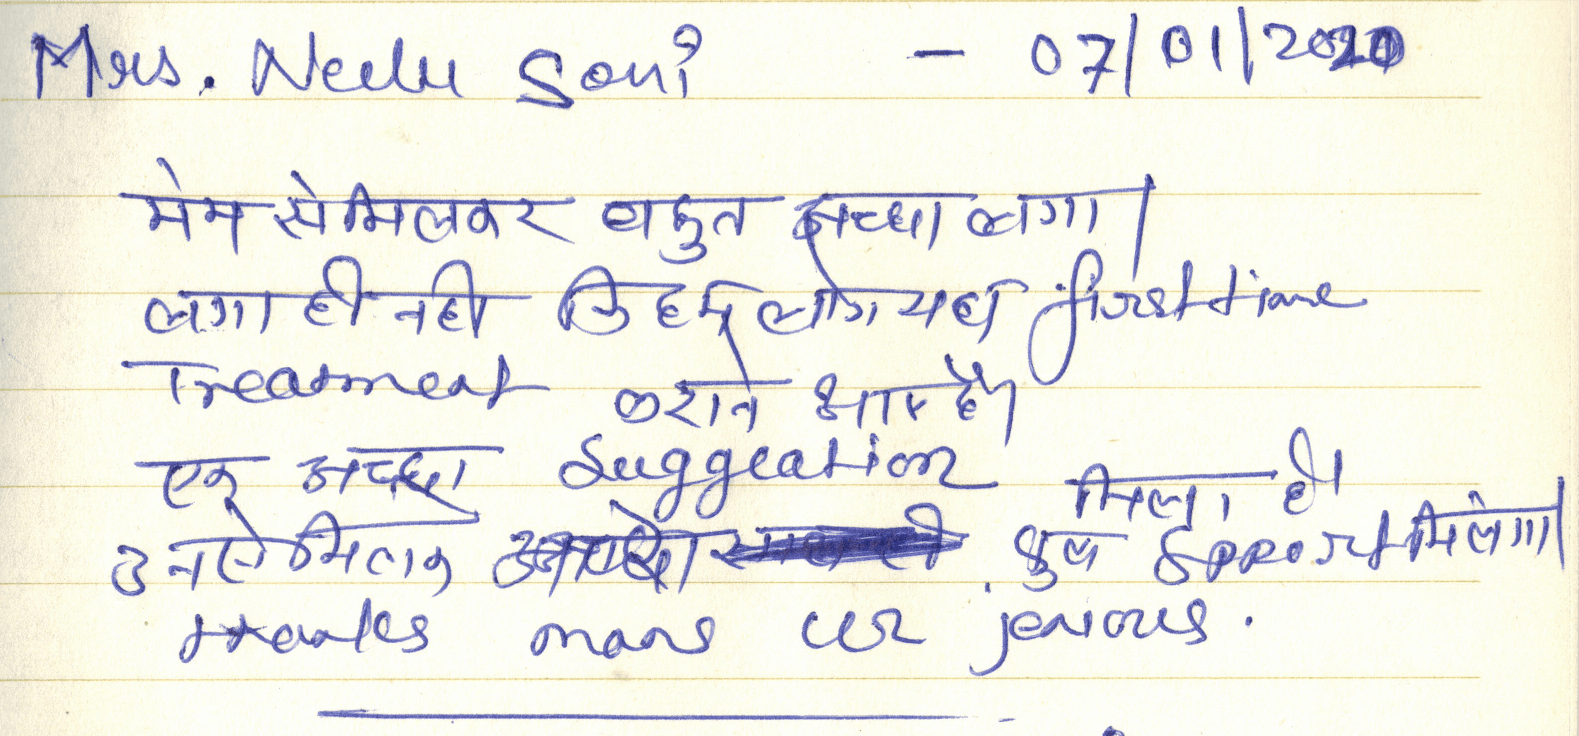 Mrs. Neelu Soni - 07/01/2020
मेम से मिलकर बहुत अच्छा लगा।
लगा ही नही कि हम लोग यहाँ first time
Treatment कराने आए है।
एक अच्छा Suggeation मिला है।
उनसे मिलक फुल Spport मिलेगा।
thanks mam ur jenious.